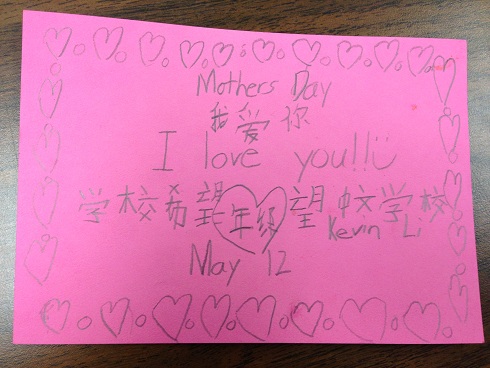 Mothers Day
我爱你
I love you!!
学校希望年级望中文学校
Kevin Li
May 12